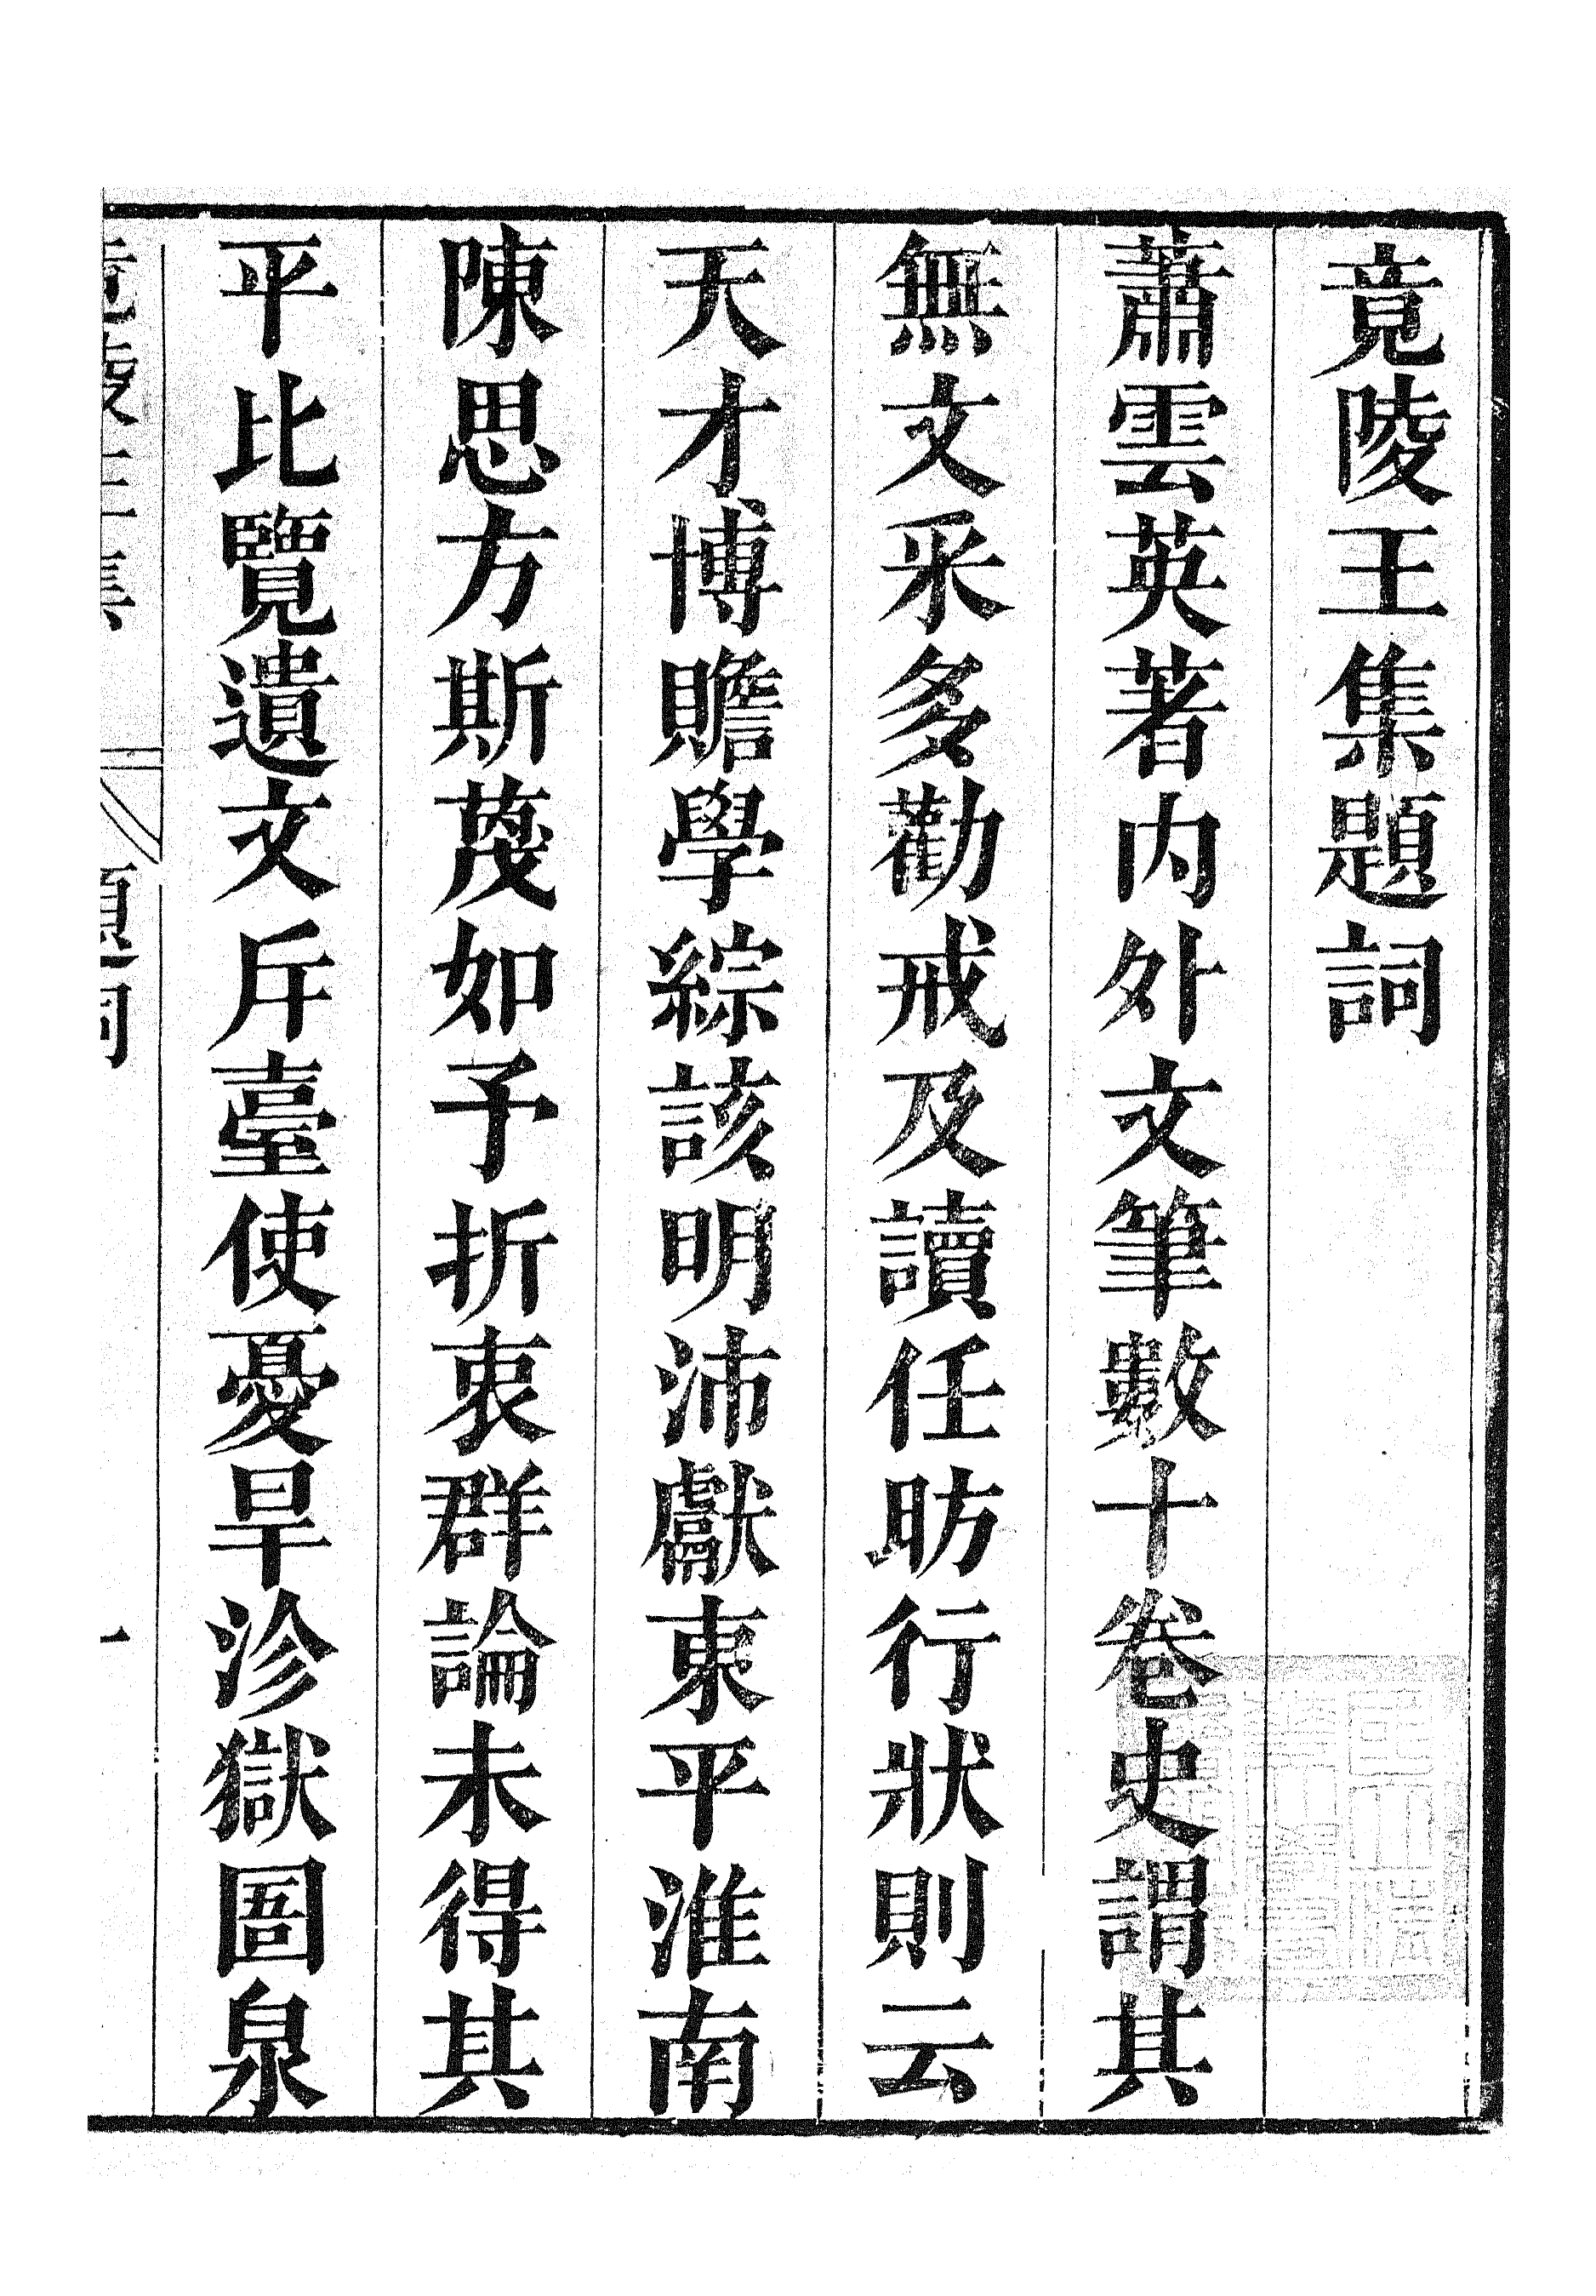 竟陵王集題詞
蕭雲英著内外文筆數十卷史謂其
無文采多勸戒及讀任昉行狀則云
天才博贍學綜該明沛獻東平淮南
陳思方斯蔑如予折衷群論未得其
平比覽遺文斥臺使憂旱沴獄圄泉
竟陵王集
題詞
一